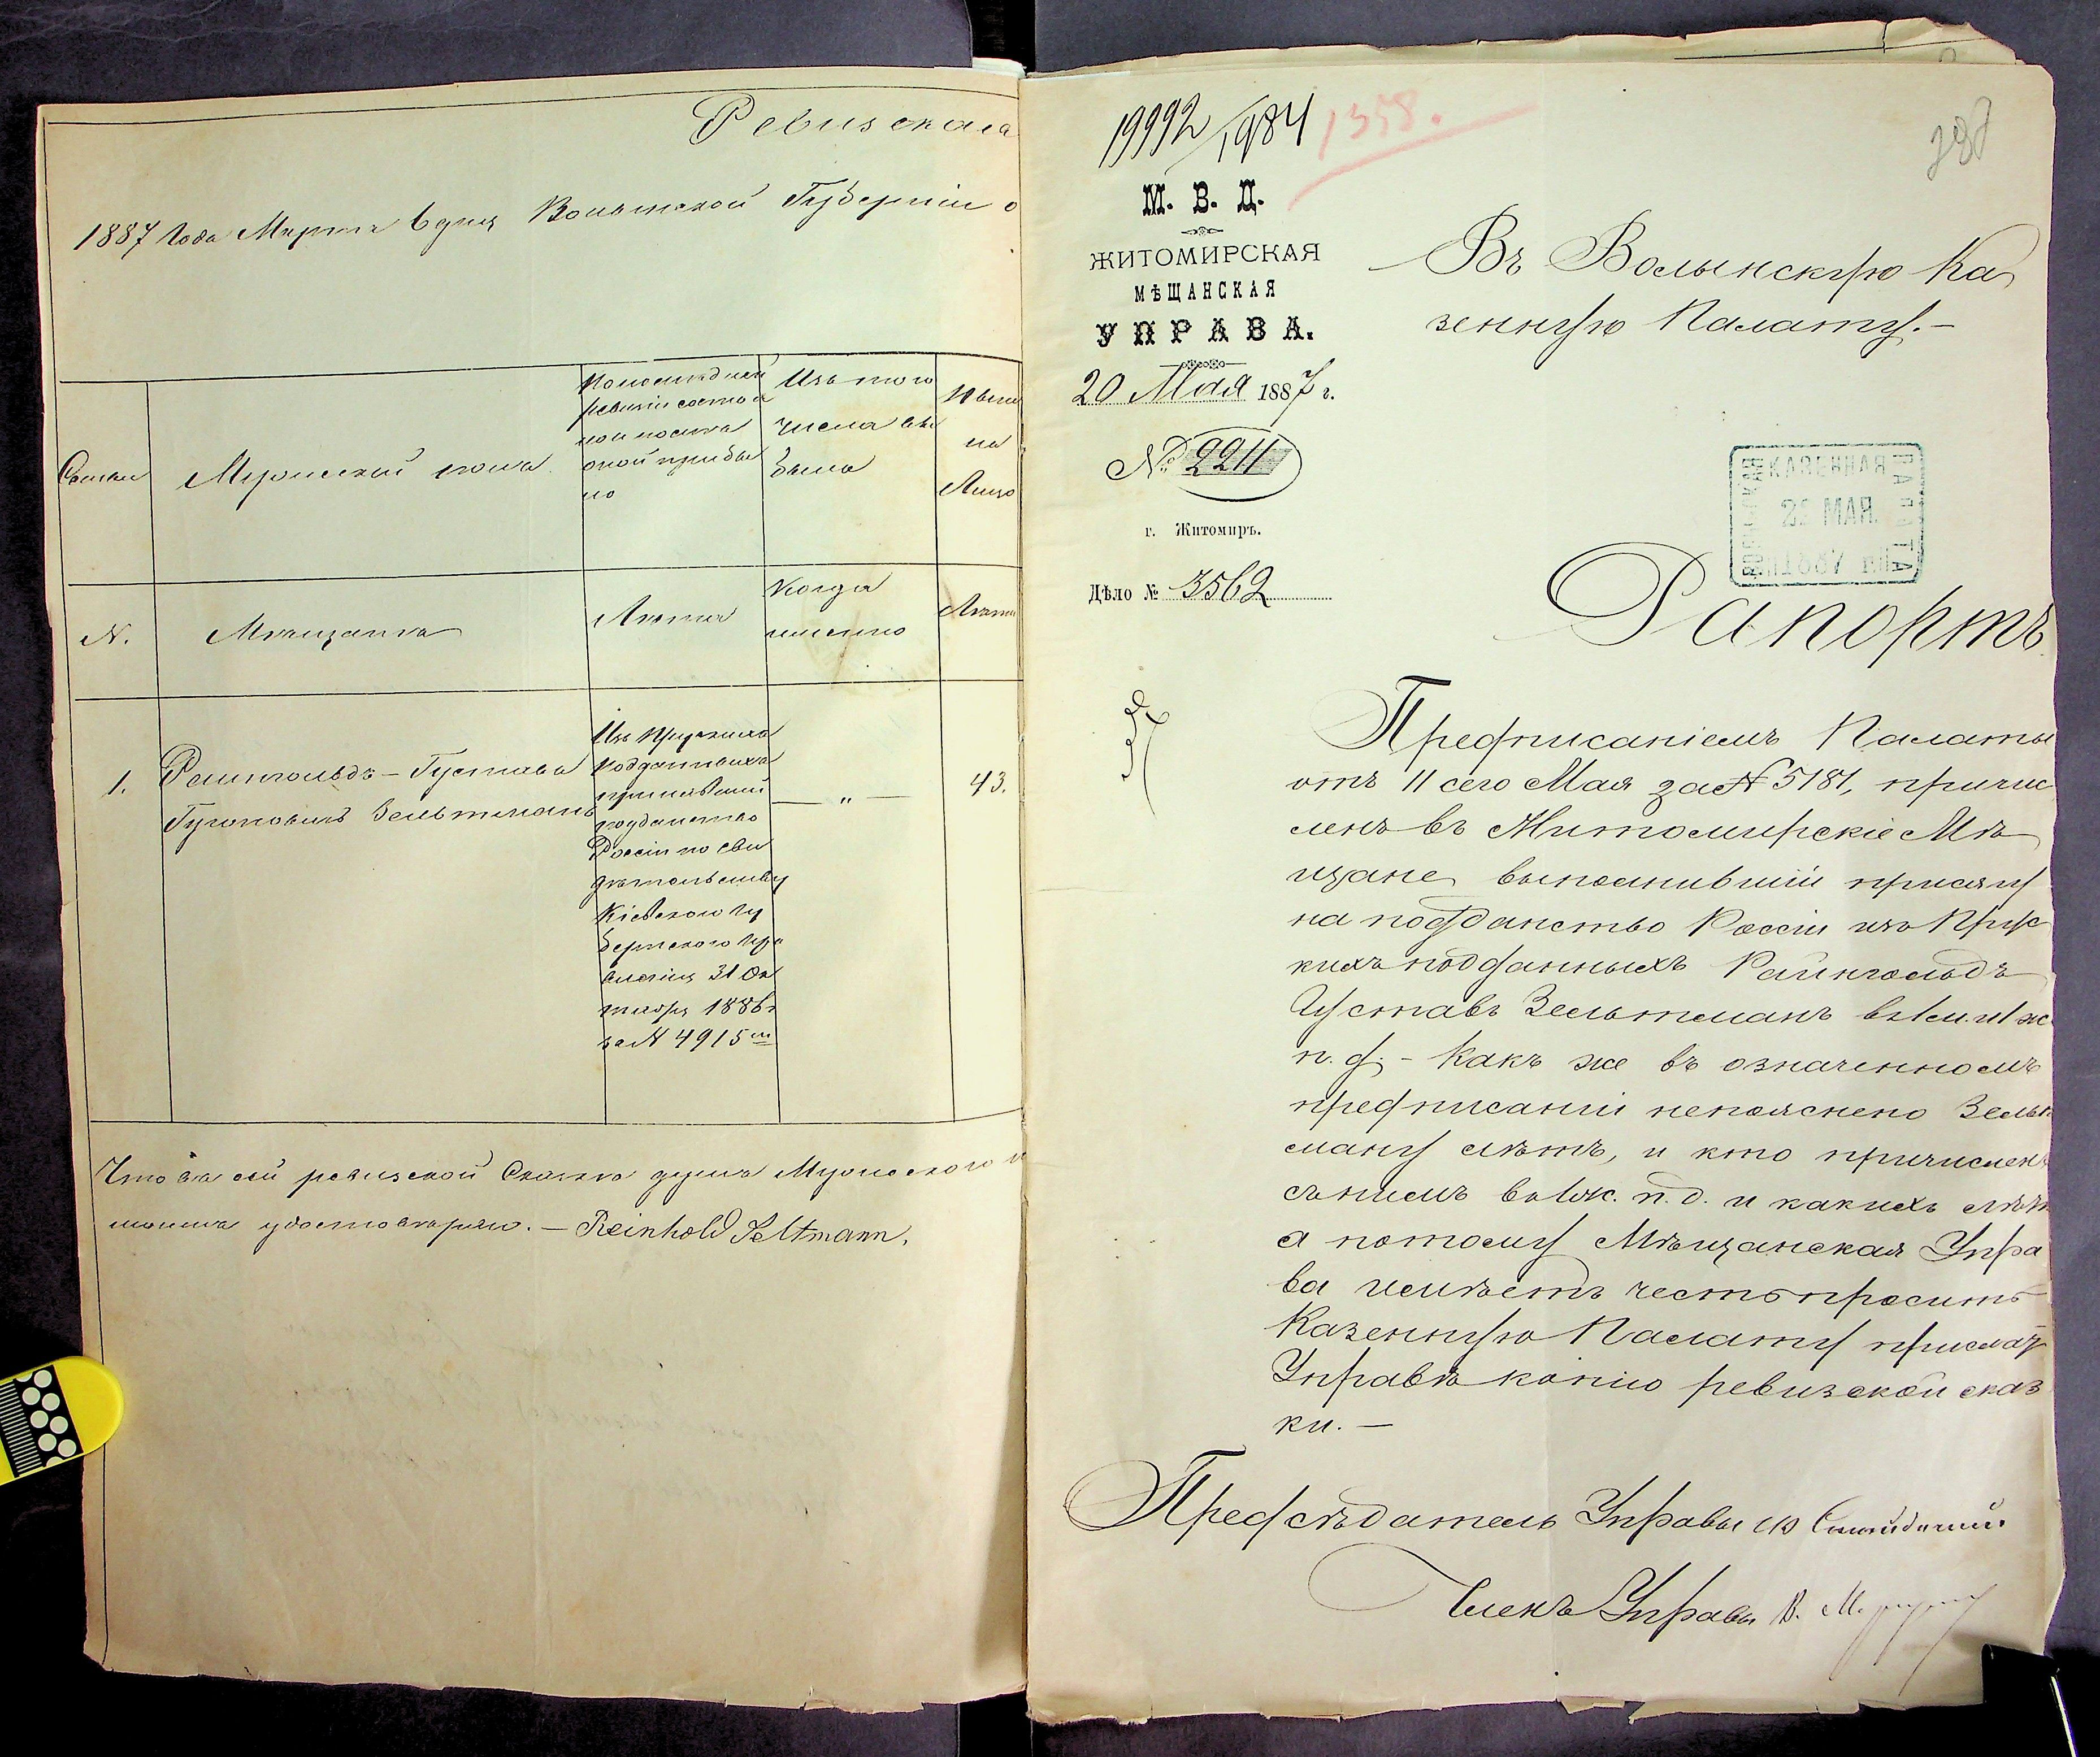 Ревизская
1887 Года Марта 6 дня Волынской Губерніи о
Семьи
Мужескій полъ
По последней
ревизіи состоя
ло и после
оной прибы
ло
Изъ того
числа вы
было
Ныне
на
Лицо
N.
Мѣщанъ
Лѣта
Когда
именно
Лѣта
1.
Рейнгольдъ-Густавъ
Зельтманъ
Изъ Прускихъ
подданныхъ
принявший
подданство
Россіи по сви
дѣтельству
Кіевского Гу
бернского Пра
вленія 31 Ок
тября 1886 г
за N 4915 м
— „ —
43.
Что въ сей ревизской Сказкѣ душъ Мужеского п
удостоверяю. — Reinhold Seltmann.
19992/1984
1358.
М. В. Д.
ЖИТОМИРСКАЯ
МѢЩАНСКАЯ
УПРАВА.
20 Мая 1887 г.
№ 2211
г. Житомиръ.
Дѣло № 3562
Въ Волынскую Ка
зенную Палату.—
КАЗЕННАЯ
ПАЛАТА
МАЯ
1887
Рапортъ
Предписаніемъ Палаты
отъ 11 сего Мая за N 5181, причис
ленъ въ Житомирскіе Мѣ
щане выполнившій присягу
на подданство Россіи изъ Прус
кихъ подданныхъ Райнгольдъ
Густавъ Зельтманъ въ 1 м. и 1 ж.
п. д. - Какъ же въ означенномъ
предписаніи непояснено Зельт
ману лѣтъ, и кто причислен
съ нимъ въ 1 ж. п. д. и какихъ лѣт
а потому Мѣщанская Упра
ва имѣетъ честь просить
Казенную Палату прислат
Управѣ копію ревизской сказ
ки.—
Предсѣдатель Управы
Членъ Управы В.